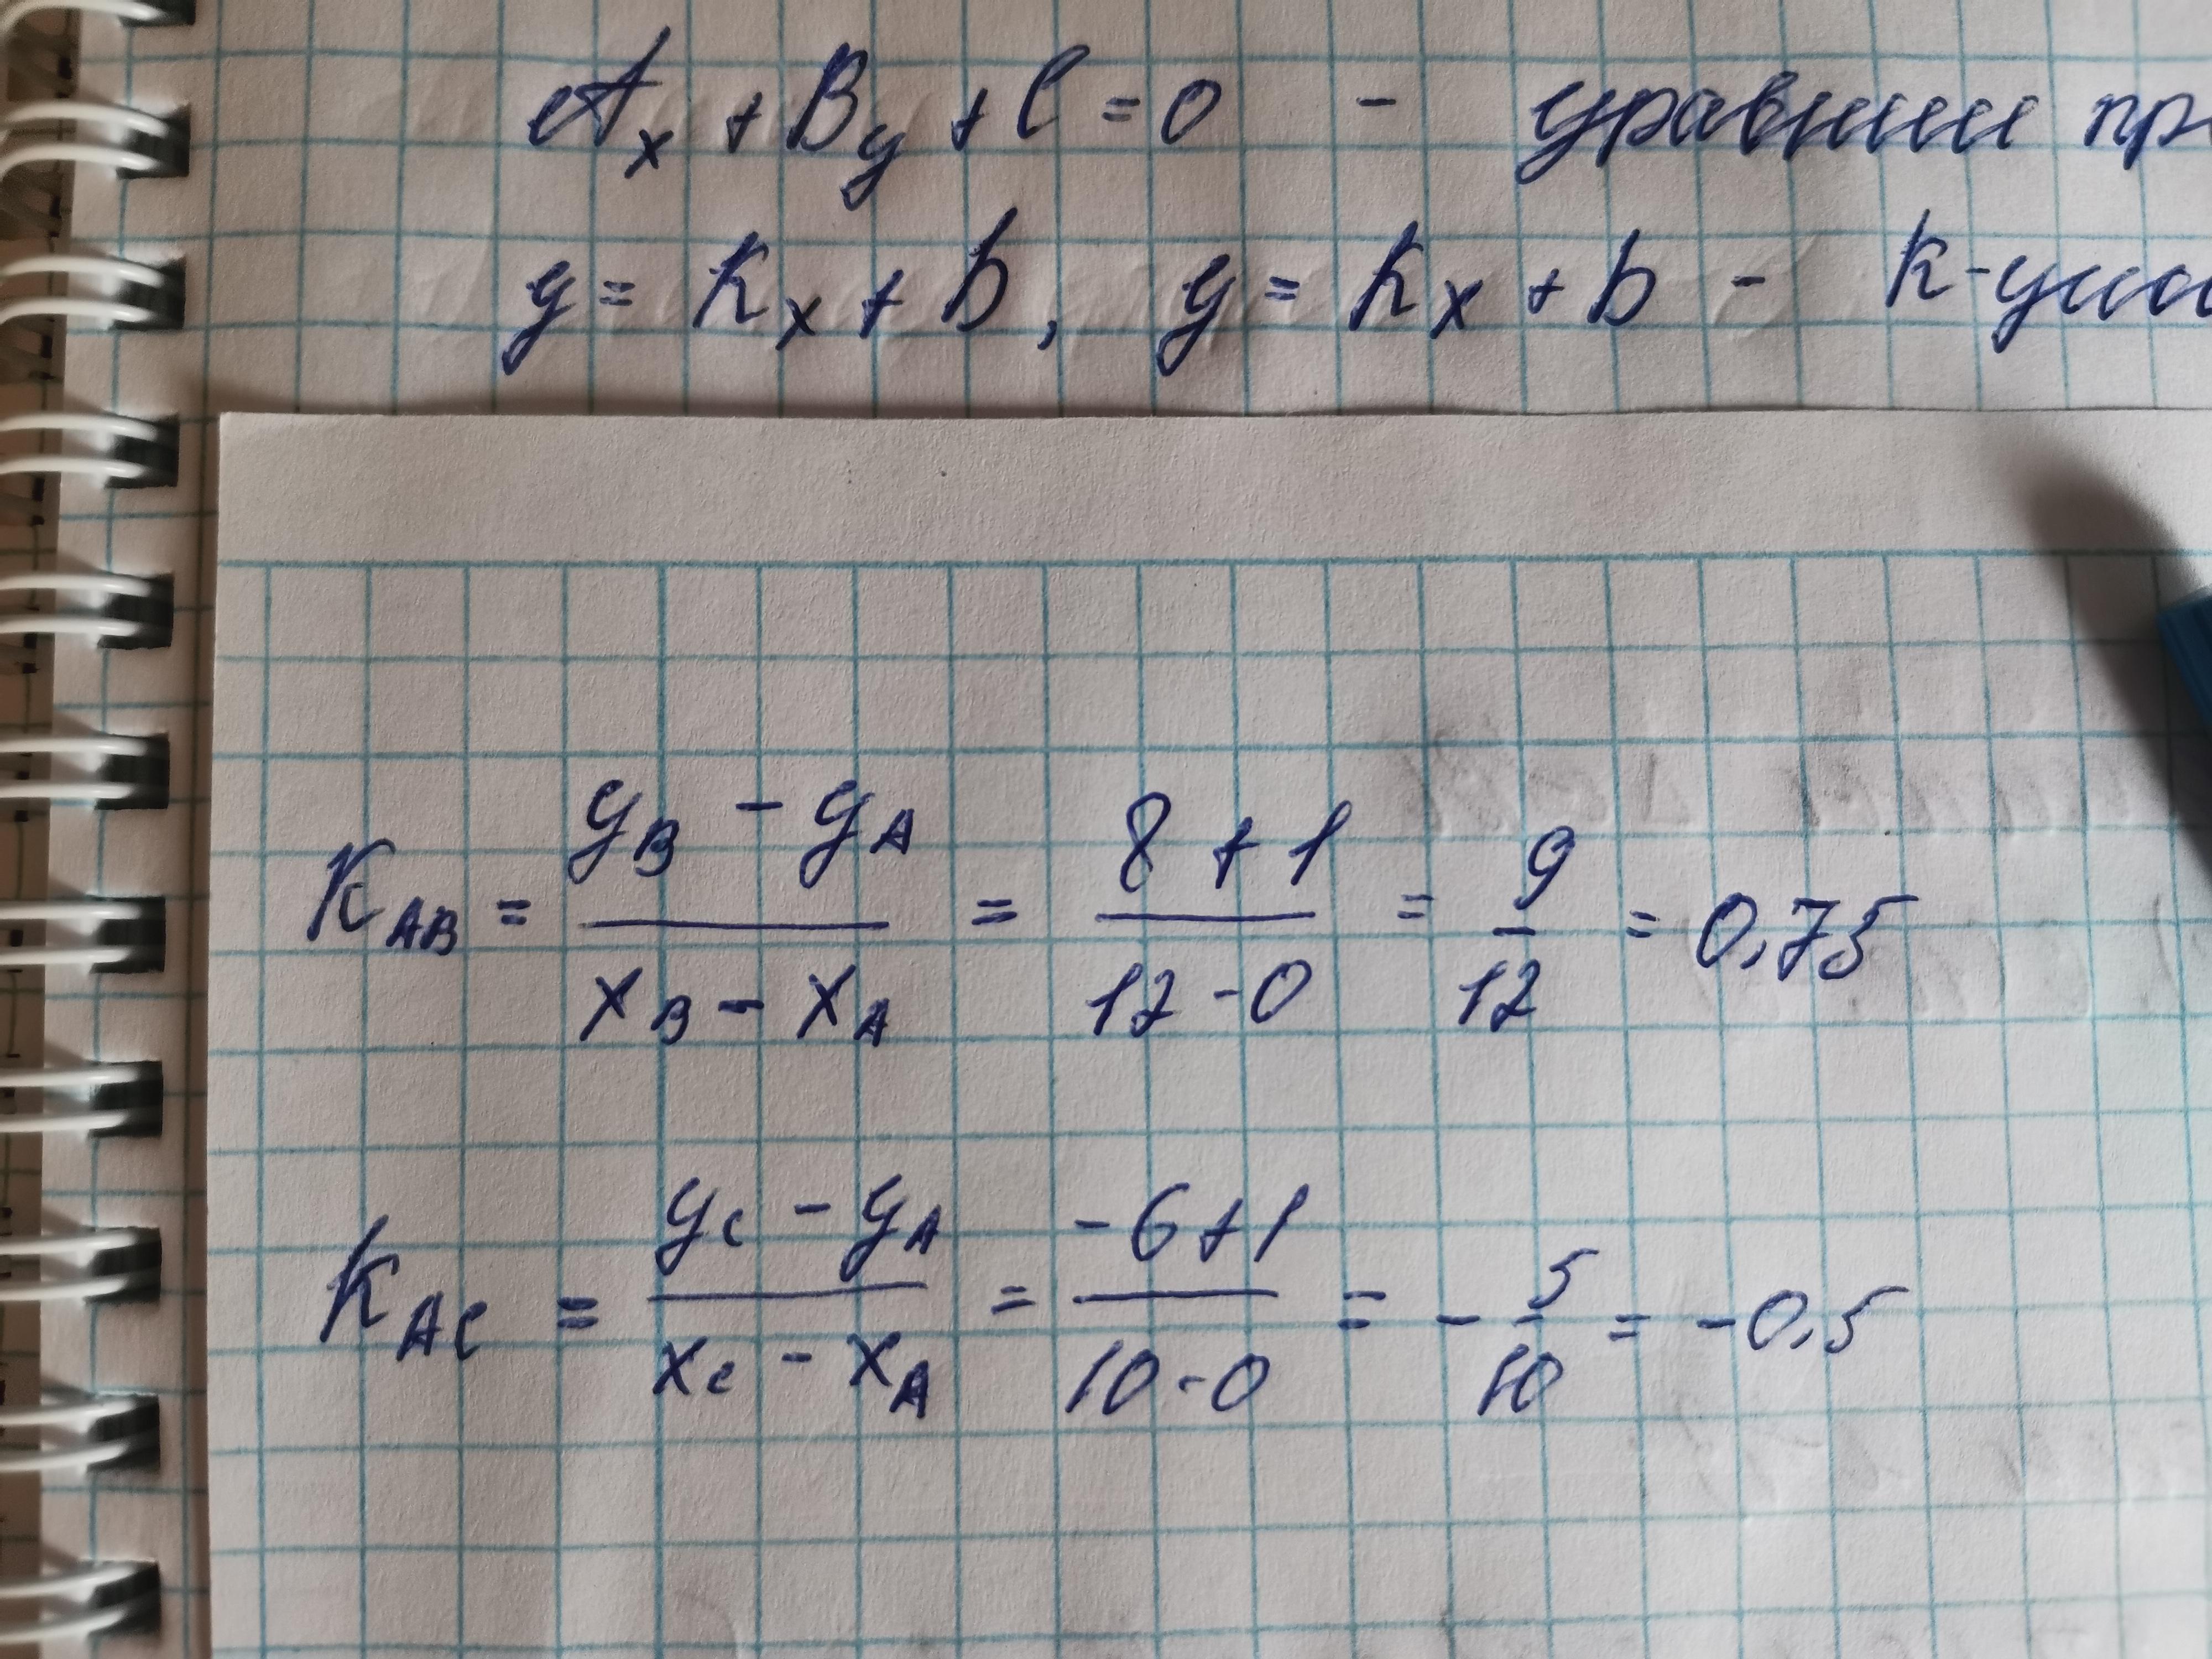 Ax + By + C = 0 - уравнени пр
y = Kx + b, y = Kx + b - K-угло
K_AB = (y_B - y_A)/(x_B - x_A) = (8 + 1)/(12 - 0) = 9/12 = 0,75
K_AC = (y_C - y_A)/(x_C - x_A) = (-6 + 1)/(10 - 0) = -5/10 = -0,5